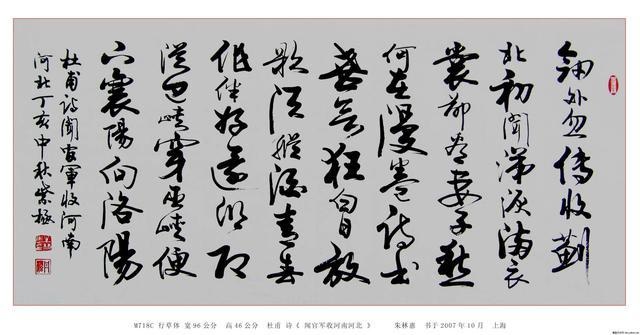 劍外忽傳收薊
北初聞涕淚滿衣
裳却看妻子愁
何在漫卷詩書
喜欲狂白日放
歌須縱酒青春
作伴好還鄉即
從巴峽穿巫峽便
下襄陽向洛陽
杜甫詩聞官軍收河南
河北丁亥中秋紫極
M718C 行草体 宽96公分 高46公分 杜甫 诗《 闻官军收河南河北 》 朱林惠 书于2007年10月 上海